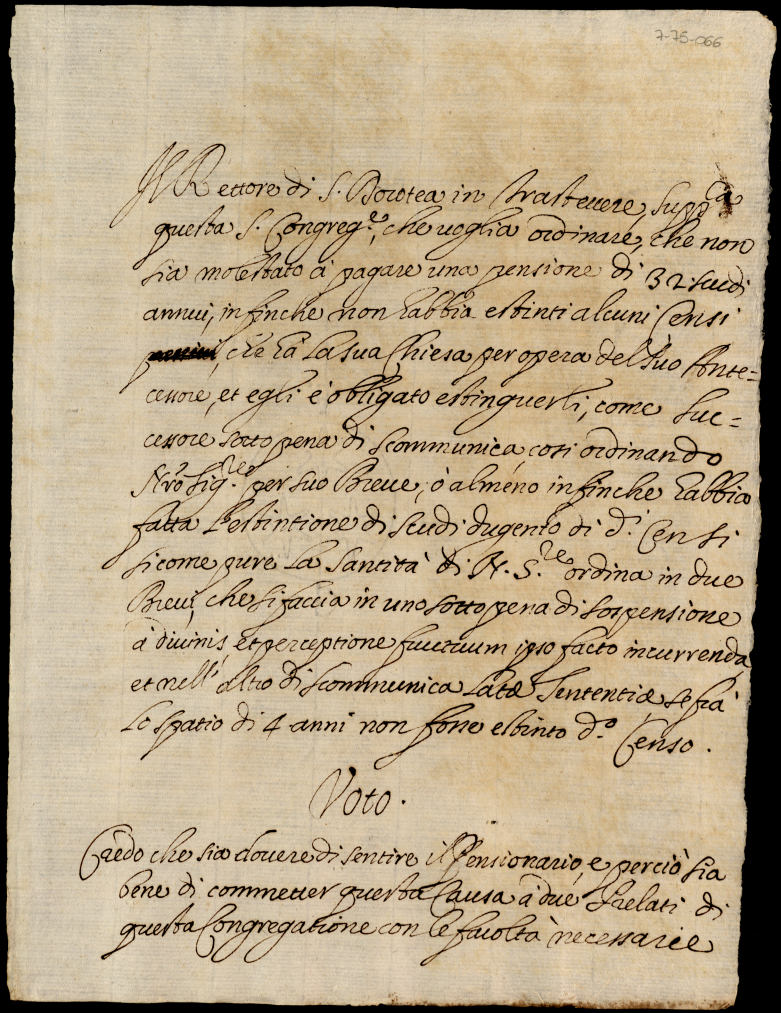 7-75-066
Il Rettore di S. Dorotea in Trasteuere, supp.ca
questa S. Congreg.e, che uoglia ordinare, che non
sia molestato à pagare una pensione di 32 scudi
annui, in finche non habbia estinti alcuni Censi
che hà la sua Chiesa per opera del suo Ante=
cessore, et egli è obligato estinguerli, come suc=
cessore sotto pena di scommunica, cosi ordinando
Nrõ Sig.re per suo Breue, ò alméno in finche habbia
fatta l'estintione di scudi dugento di d.i Censi
sicome pure la Santità di N. S.re ordina in due
Breui, che si faccia in uno sotto pena di sospensione
à diuinis, et perceptione fructuum ipso facto incurrenda
et nell' altro di scommunica latæ sententiæ se frà
lo spatio di 4 anni non fosse estinto d.o Censo.
Voto.
Credo che sia douere di sentire il Pensionario, e perciò sia
bene di commetter questa Causa à due Prelati di
questa Congregatione con le facoltà necessarie